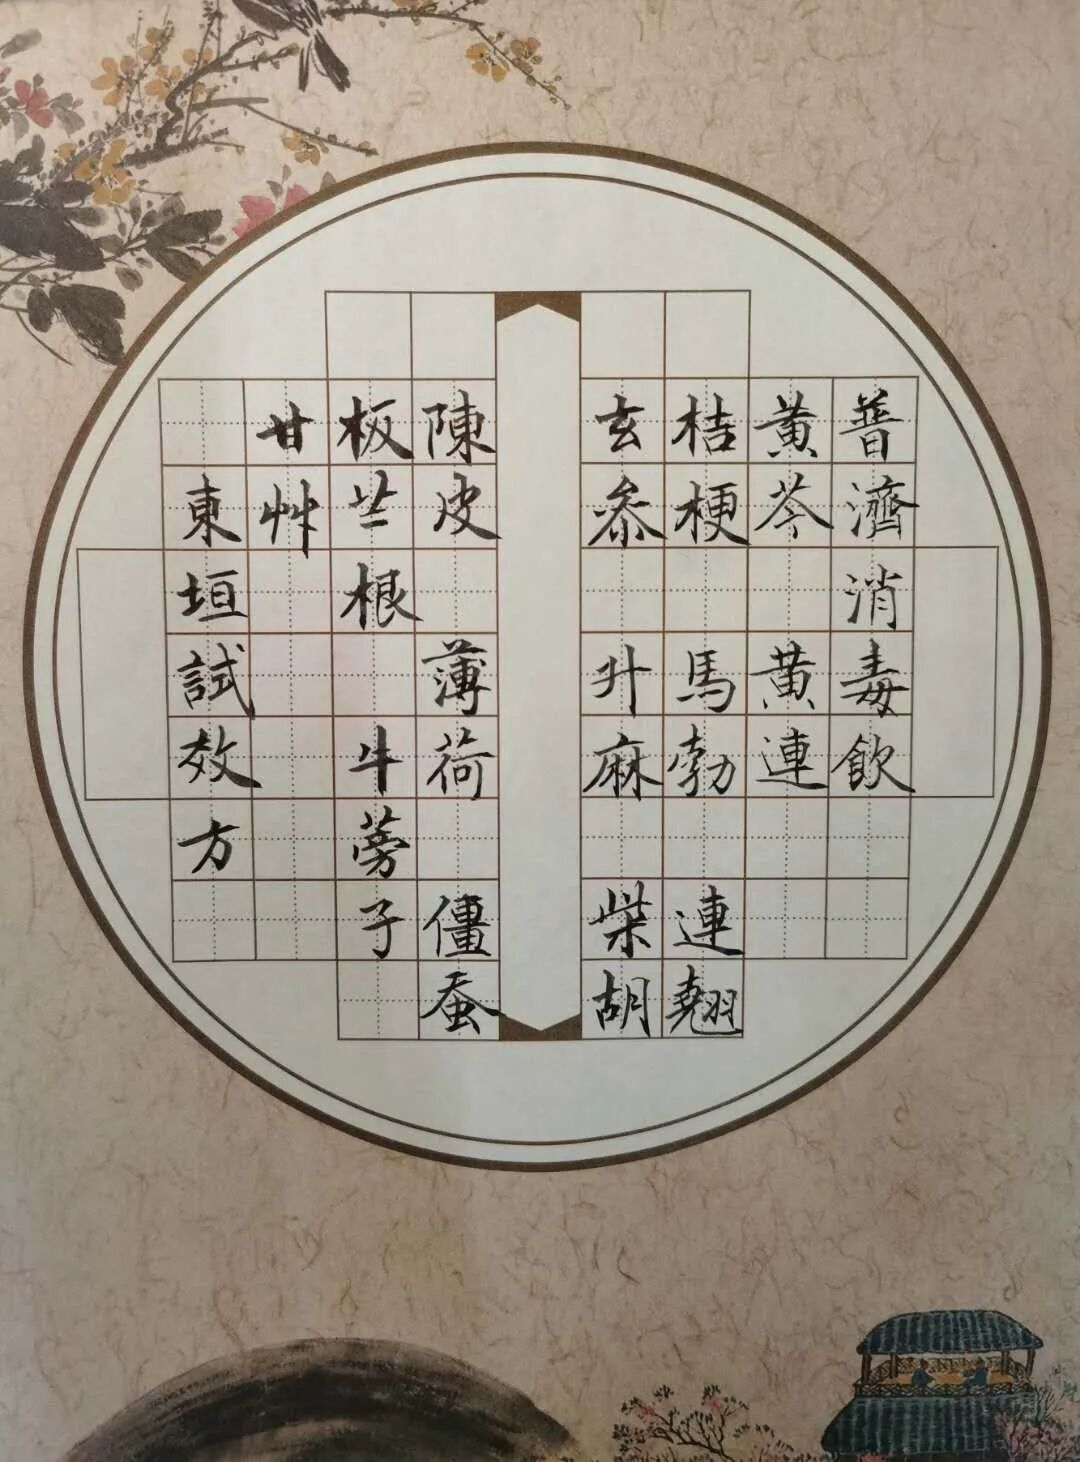 普濟消毒飲
黃芩 黃連
桔梗 馬勃 連翹
玄參 升麻 柴胡
陳皮 薄荷 僵蚕
板芷根 牛蒡子
甘艸
東垣試效方